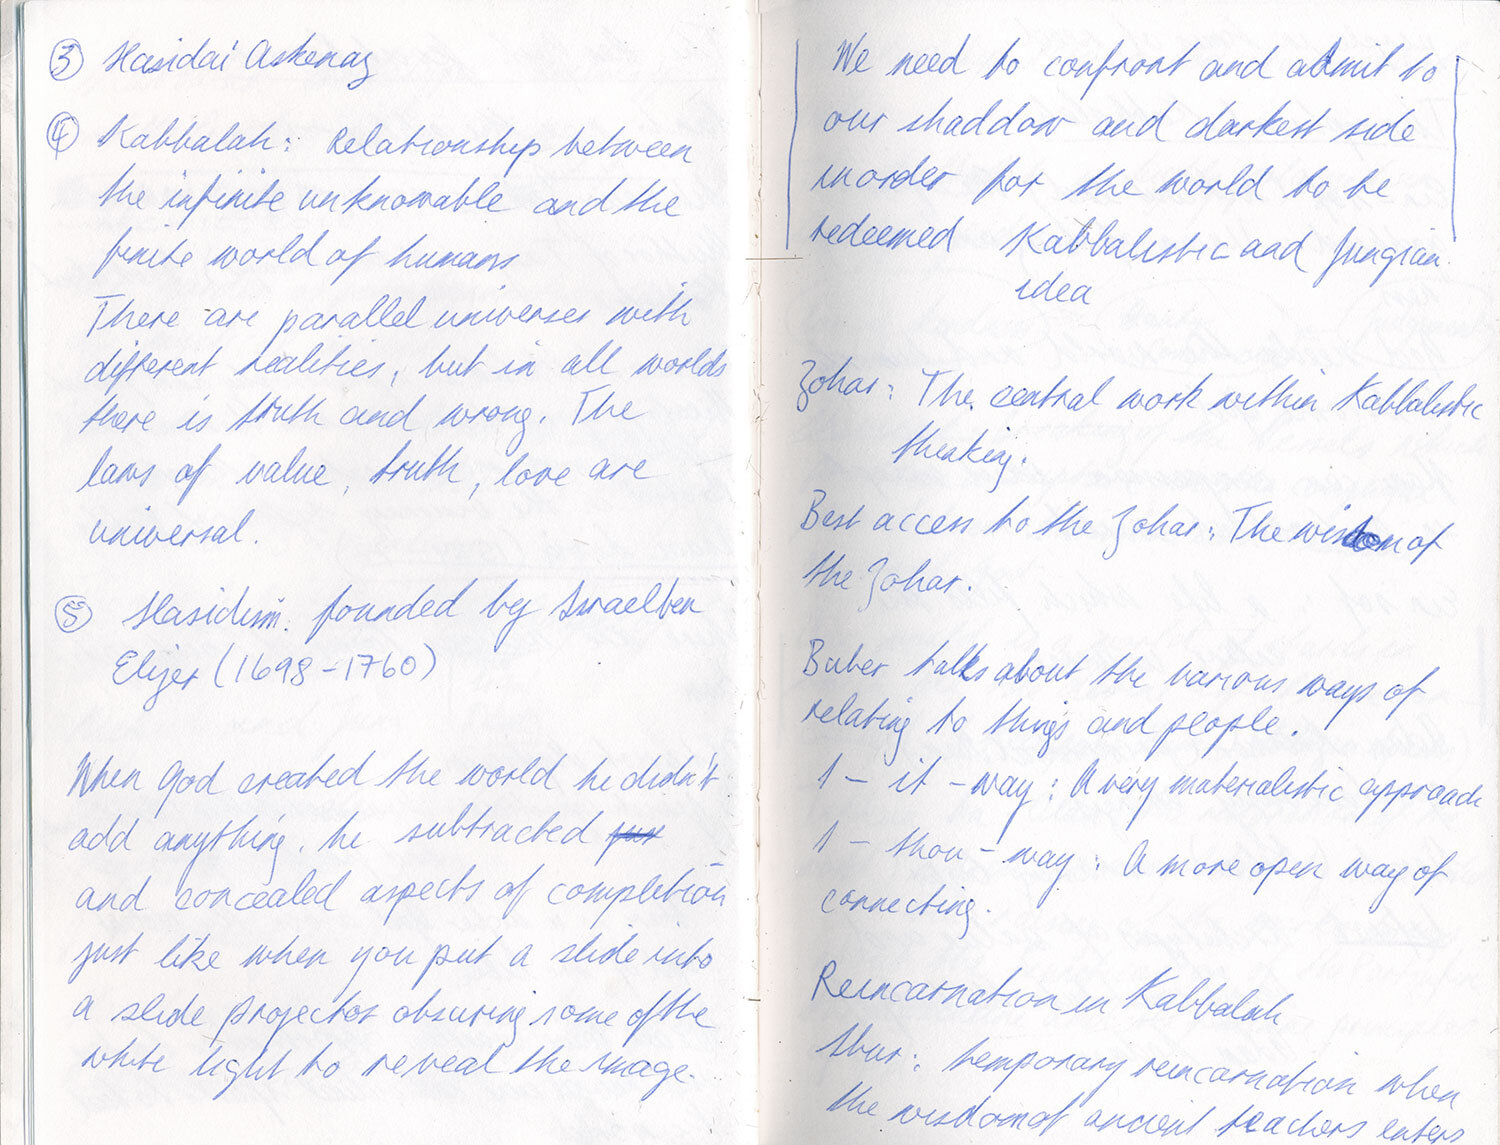 3 Hasidai Askenaz
4 Kabbalah: Relationship between
the infinite unknowable and the
finite world of humans
There are parallel universes with
different realities, but in all worlds
there is truth and wrong. The
laws of value, truth, love are
universal.
5 Hasidism. founded by Israel ben
Elizer (1698-1760)
When God created the world he didn't
add anything, he subtracted
and concealed aspects of completion
just like when you put a slide into
a slide projector obscuring some of the
white light to reveal the image.
We need to confront and admit to
our shaddow and darkest side
inorder for the world to be
redeemed Kabbalistic and Jungian
idea
Zohar: The central work within Kabbalistic
thinking.
Best access to the Zohar: The wisdom of
the Zohar.
Buber talks about the various ways of
relating to things and people.
I - it - way: A very materialistic approach
I - thou - way: A more open way of
connecting.
Reincarnation in Kabbalah
Ibur: temporary reincarnation when
the wisdom of ancient teachers enters